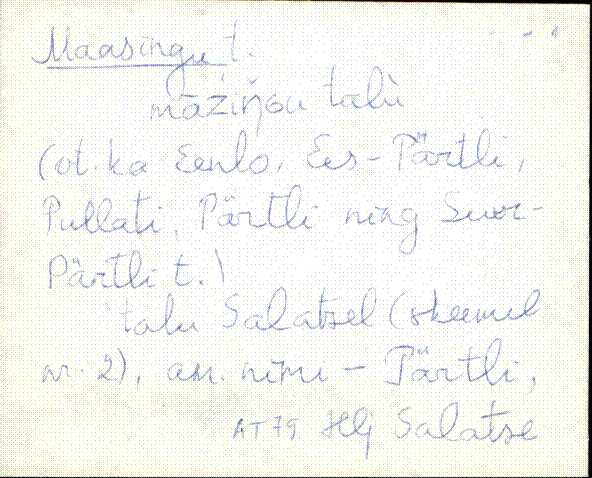 Maasingu t.
māziŋ̆ou talù
(vt. ka Eenlo, Ees-Pärtli,
Pullati, Pärtli ning Suur-
Pärtli t.)
talu Salatsel (skeemil
nr. 2), am. nimi - Pärtli,
AT79 Hlj Salatse